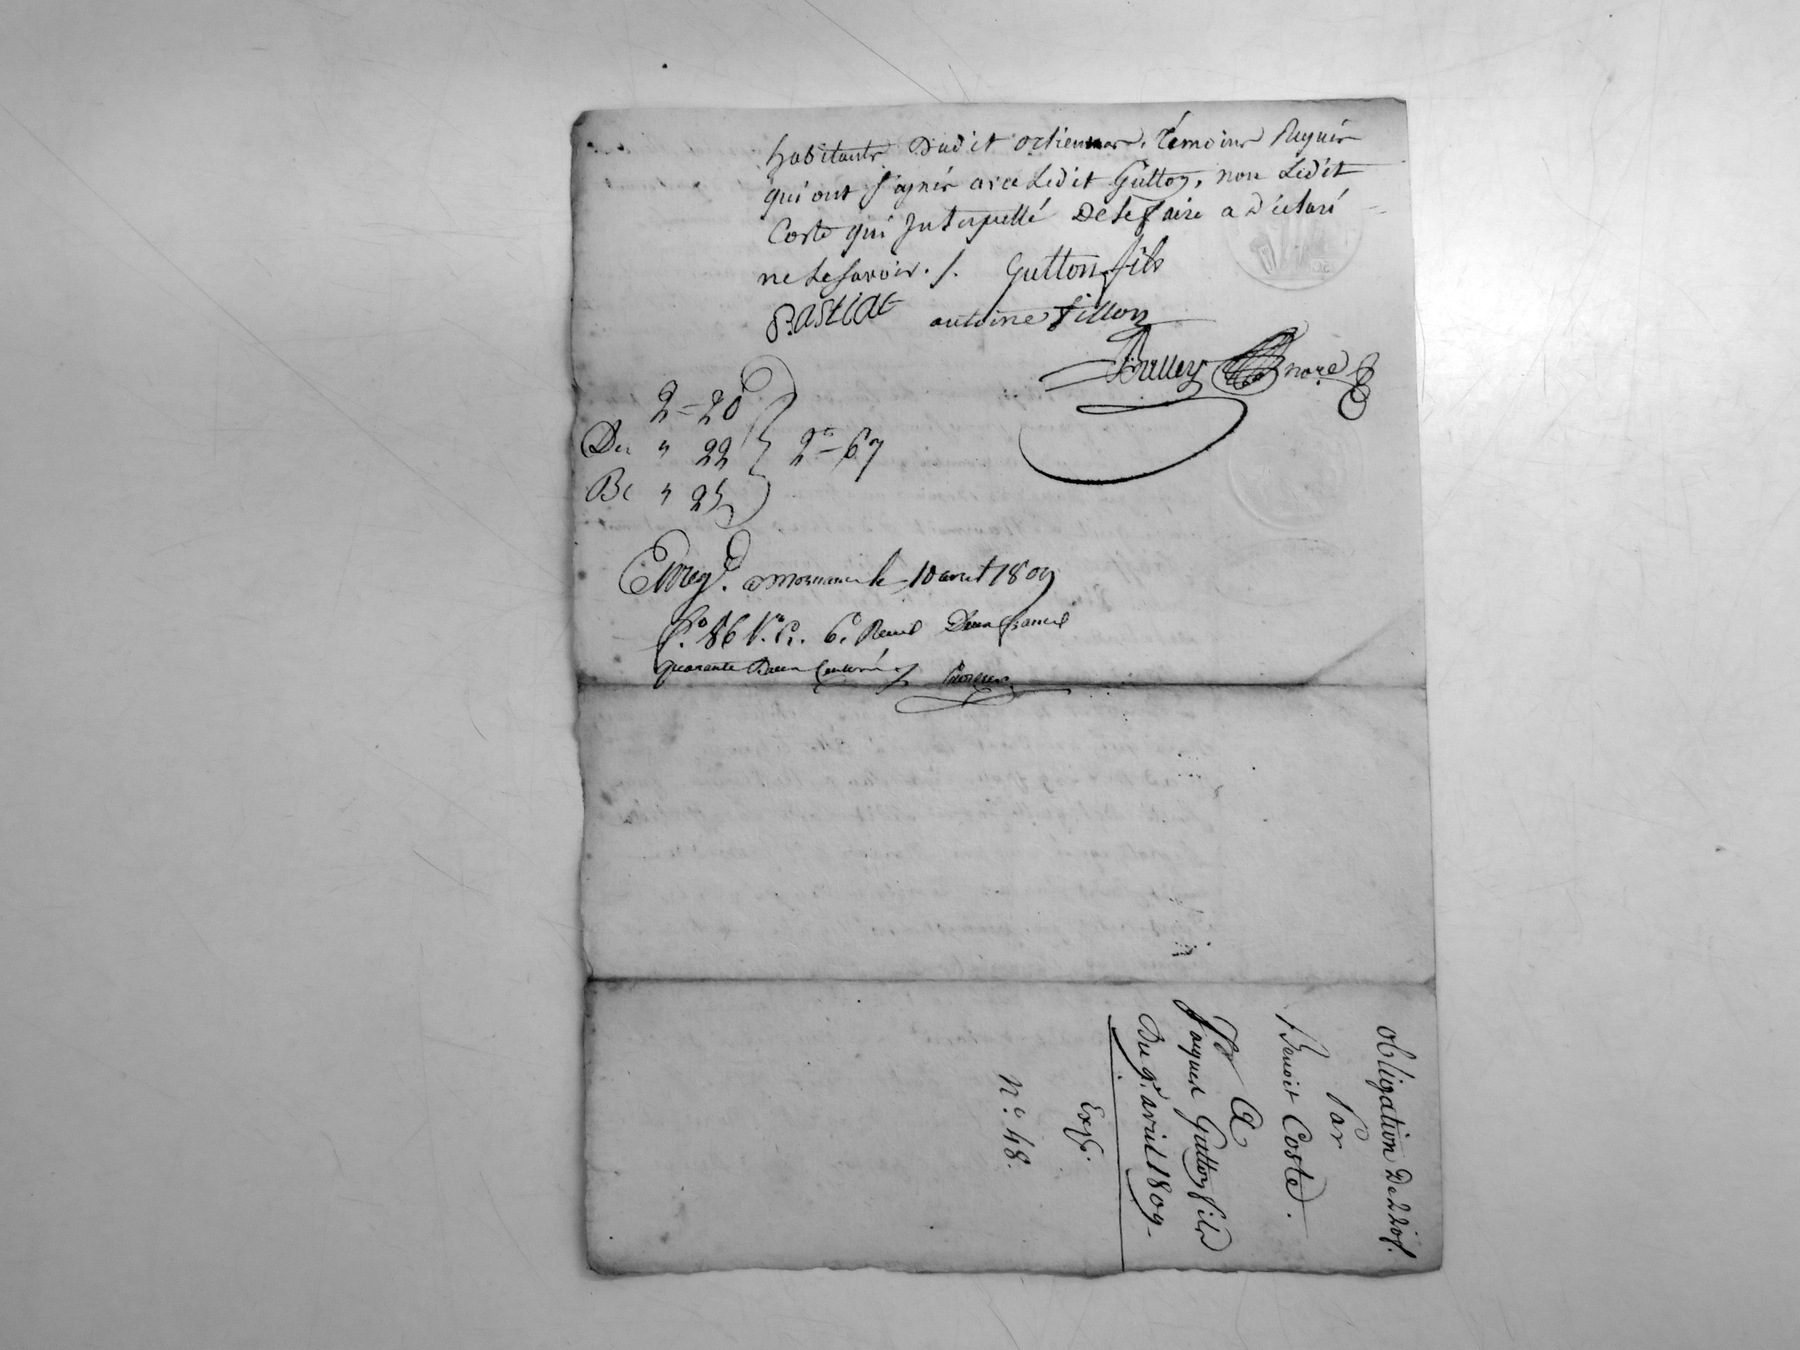 habitants Dudit témoins Requis
qui ont signés avec Ledit Gutton, non Ledit
Coste qui Interpellé De le faire a Déclaré
ne le savoir. /. Gutton fils
Bastide antoine fillon
Brulley nore
2 = 20
Du " 22 2 = 67
Bc " 25
Enreg.é a mornant le 10 avril 1809
f.o 86 V.o C. 6. Reçu Deux francs
quarante Deux Centimes
obligation De 220f.
Par
Benoit Coste.
A
Jaques Gutton fils
Du 9 avril 1809
Exp.
N.o 48.